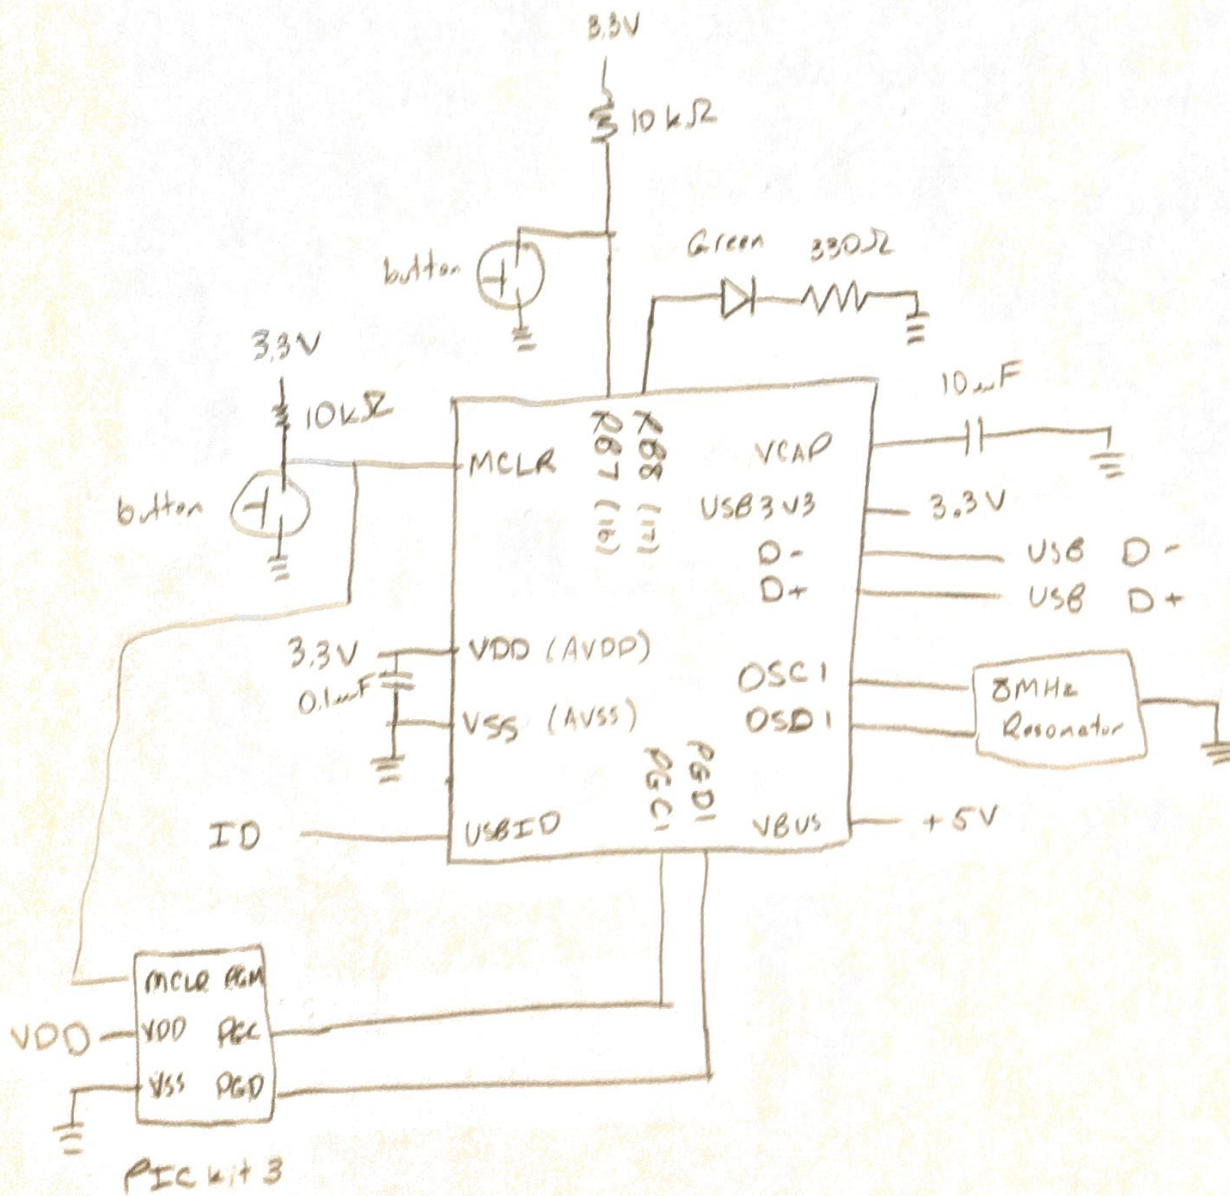 3.3V
10 kΩ
button
Green
330Ω
3.3V
10kΩ
button
10uF
MCLR
RB7 (16)
RB8 (17)
VCAP
USB3V3
3.3V
D-
USB D-
D+
USB D+
3.3V
0.1uF
VDD (AVDD)
VSS (AVSS)
OSC1
OSD1
8MHz
Resonator
ID
USBID
PGC1
PGD1
VBUS
+5V
MCLR PGM
VDD
VDD PGC
VSS PGD
PICkit3